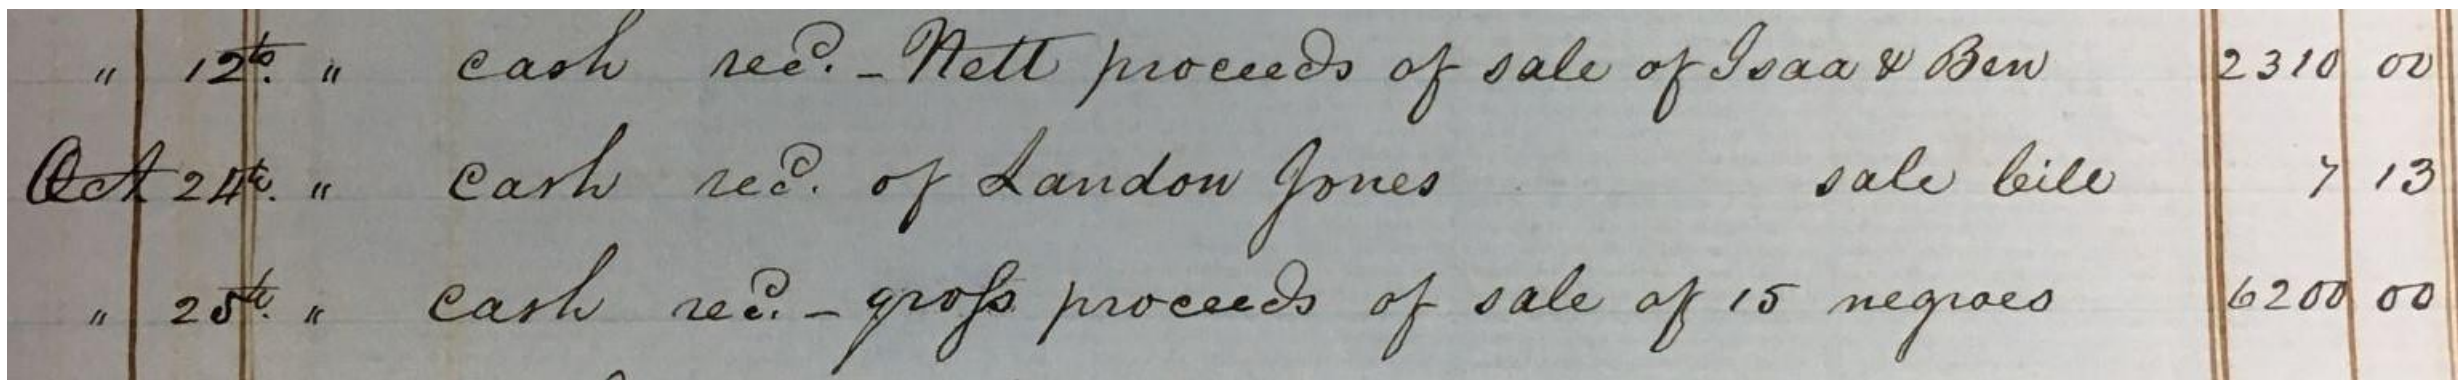 " 12th. " cash recd. - Nett proceeds of sale of Isaa & Ben 2310 00
Oct 24th. " cash recd. of Landon Jones sale bill 7 13
" 25th. " cash recd. - gross proceeds of sale of 15 negroes 6200 00